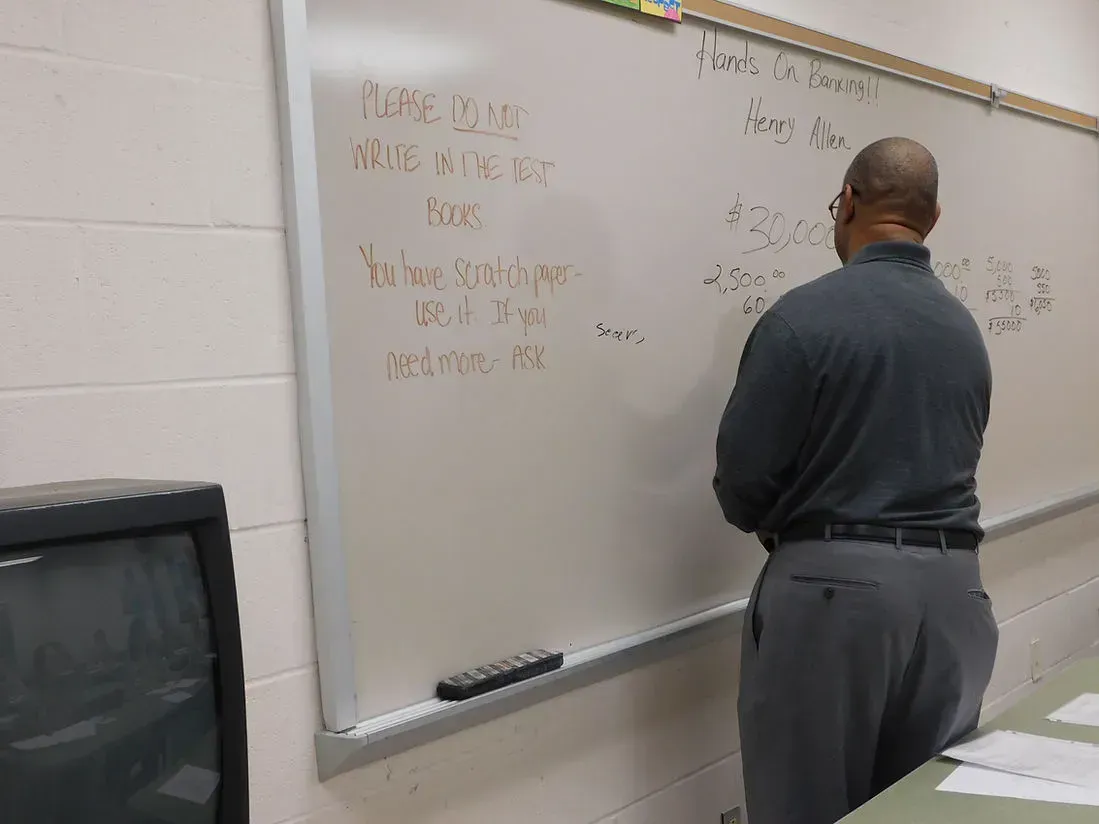 PLEASE DO NOT
WRITE IN THE TEST
BOOKS
You have scratch paper-
use it. If you
need more- ASK
Hands On Banking!!
Henry Allen
$30,000
2,500.00
60
000 00
10
5,000
500
$5500
10
$55000
5000
550